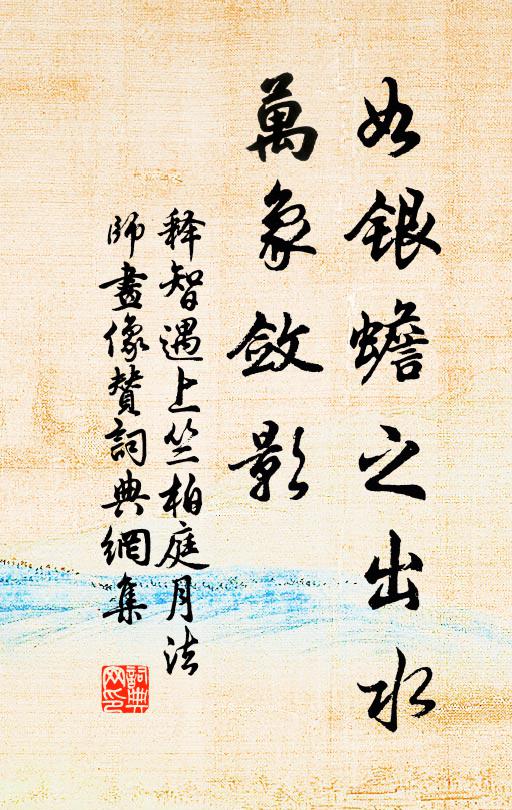 如銀蟾之出水
萬象斂影
释智遇上竺柏庭月法
師畫像贊詞典網集
詞典
网印